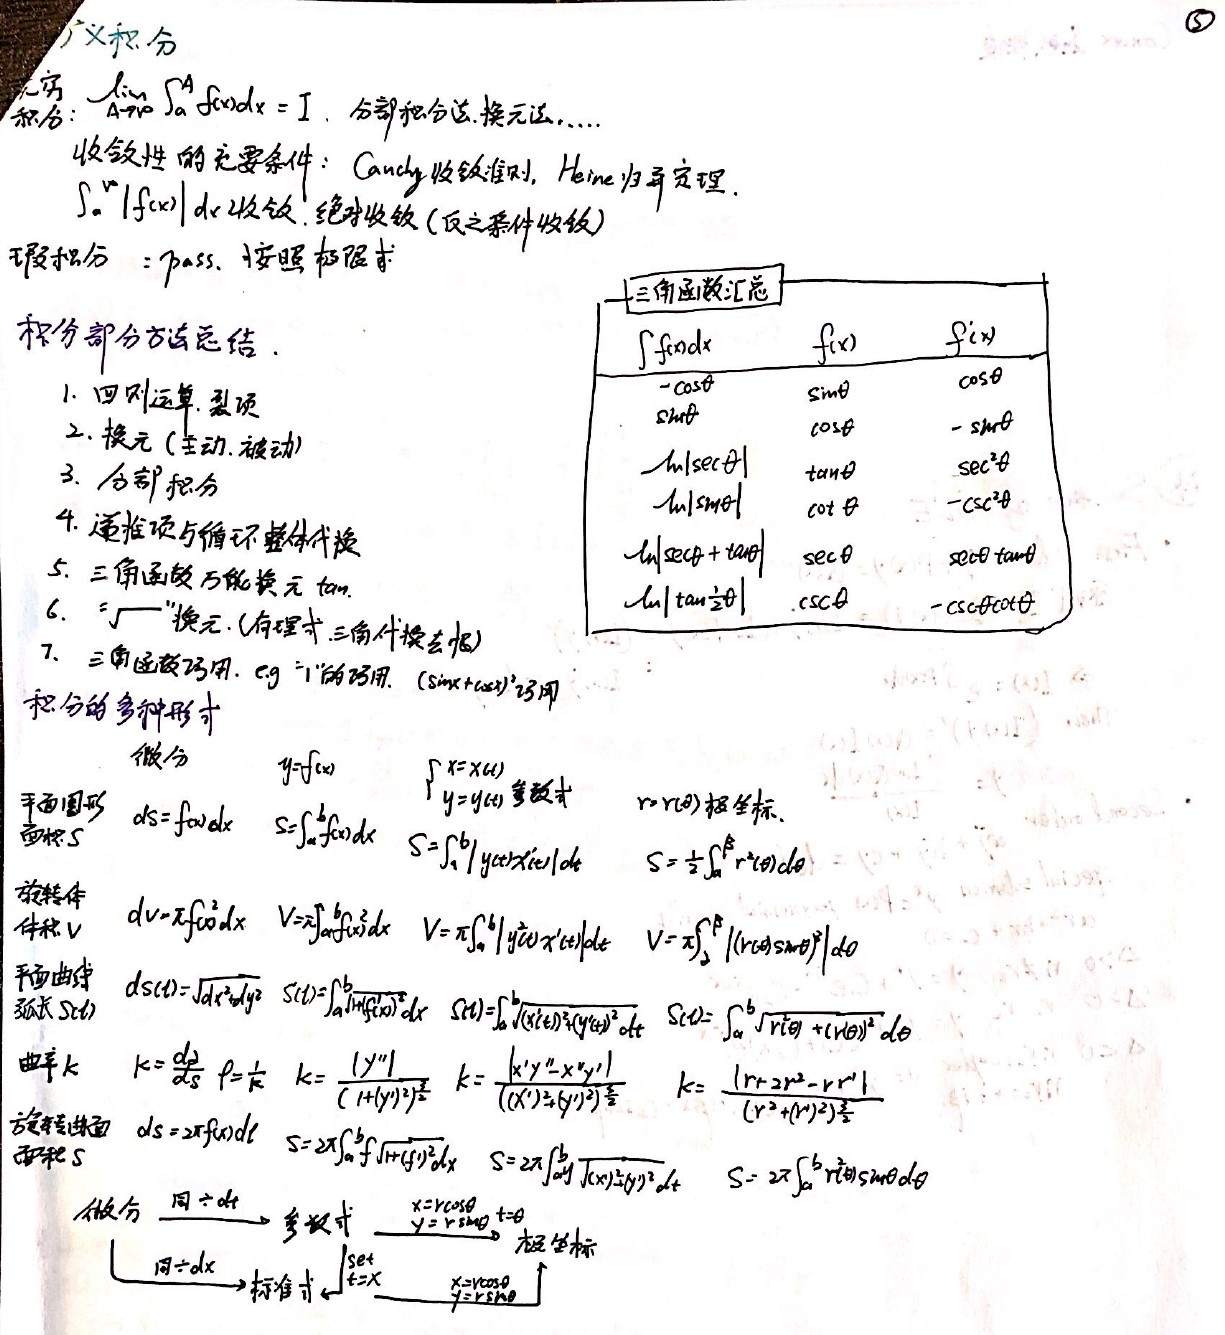 ⑤
广义积分
无穷积分: lim A→∞ ∫ₐᴬ f(x)dx = I. 分部积分法.换元法.....
收敛性的充要条件: Cauchy收敛准则, Heine归并定理.
∫ₐ^∞ |f(x)| dx 收敛. 绝对收敛 (反之条件收敛)
瑕积分 : pass. 按照极限求
积分部分方法总结.
1. 四则运算.裂项
2. 换元 (主动.被动)
3. 分部积分
4. 递推项与循环整体代换
5. 三角函数万能换元 tan.
6. "√‾" 换元. (有理式.三角代换去根)
7. 三角函数巧用. e.g "1"的巧用. (sinx+cosx)²巧用
三角函数汇总
∫f(x)dx f(x) f'(x)
-cosθ sinθ cosθ
sinθ cosθ -sinθ
ln|secθ| tanθ sec²θ
ln|sinθ| cotθ -csc²θ
ln|secθ + tanθ| secθ secθ tanθ
ln|tan½θ| cscθ -cscθcotθ
积分的多种形式
微分 y=f(x) { x=x(t) y=y(t) 参数式 r=r(θ) 极坐标.
平面图形面积S ds=f(x)dx S=∫ₐᵇf(x)dx S=∫ₐᵇ|y(t)x'(t)|dt S=½∫ₐ^β r²(θ)dθ
旋转体体积V dv=πf(x)²dx V=π∫ₐᵇf(x)²dx V=π∫ₐᵇ|y²(t)x'(t)|dt V=π∫^β |(r(θ)sinθ)²|dθ
平面曲线弧长S(t) ds(t)=√dx²+dy² S(t)=∫ₐᵇ√1+(f'(x))² dx S(t)=∫ₐᵇ√(x'(t))²+(y'(t))² dt S(t)=∫ₐᵇ√r²(θ)+(r'(θ))² dθ
曲率k K=dα/ds ρ=1/k k=|y''|/(1+(y')²)^{3/2} k=|x'y''-x''y'|/((x')²+(y')²)^{3/2} k=|r+2r²-rr''|/(r²+(r')²)^{3/2}
旋转曲面面积S ds=2πf(x)dl S=2π∫ₐᵇf√1+(f')² dx S=2π∫ₐᵇy√(x')²+(y')² dt S=2π∫ₐᵇr²(θ)sinθdθ
微分 同÷dt 参数式 x=rcosθ y=rsinθ t=θ 极坐标
同÷dx 标准式 set t=x x=rcosθ y=rsinθ